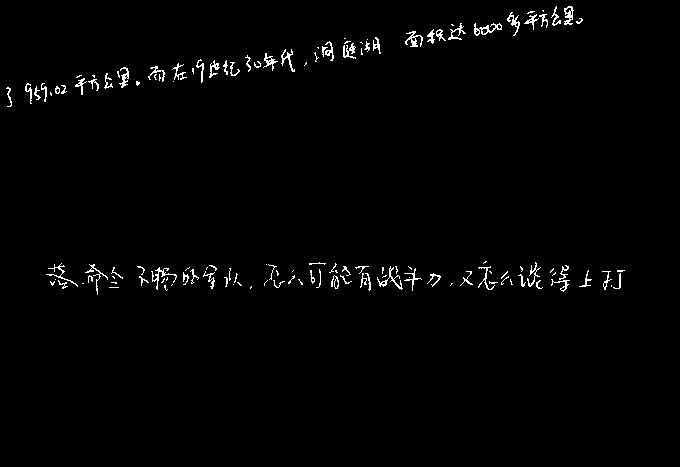 了959.02平方公里。而在19世纪30年代,洞庭湖 面积达6000多平方公里。
落,命令不畅的军队,怎么可能有战斗力,又怎么谈得上打